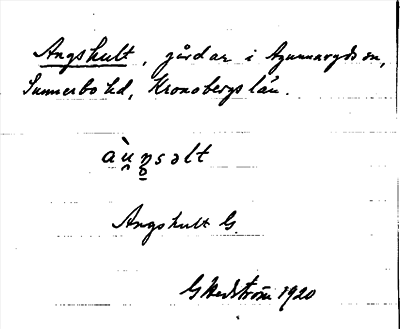 Angshult, gårdar i Agunnaryds sn,
Sunnerbo hd, Kronobergs län.
àu̯n̥səlt
Angshult G.
G Hedström 1920